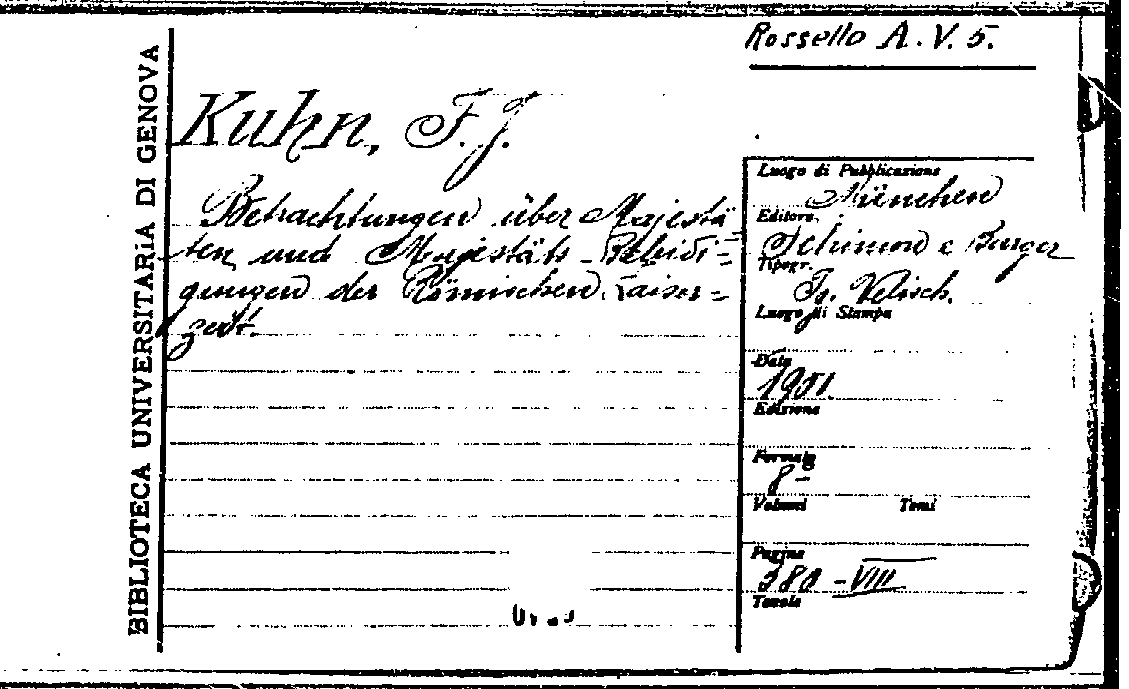 Rossello A.V.5.
BIBLIOTECA UNIVERSITARIA DI GENOVA
Kuhn, F.J.
Betrachtungen über Majestä=
ten und Majestäts-Beleidi=
gungen der Römischen Kaiser=
zeit.
Luogo di Pubblicazione
München
Editore
Schimon e Burger
Tipogr.
Is. Velisch.
Luogo di Stampa
Data
1901.
Edizione
Formato
8-
Volumi Tomi
Pagine
-VIII
Tavole